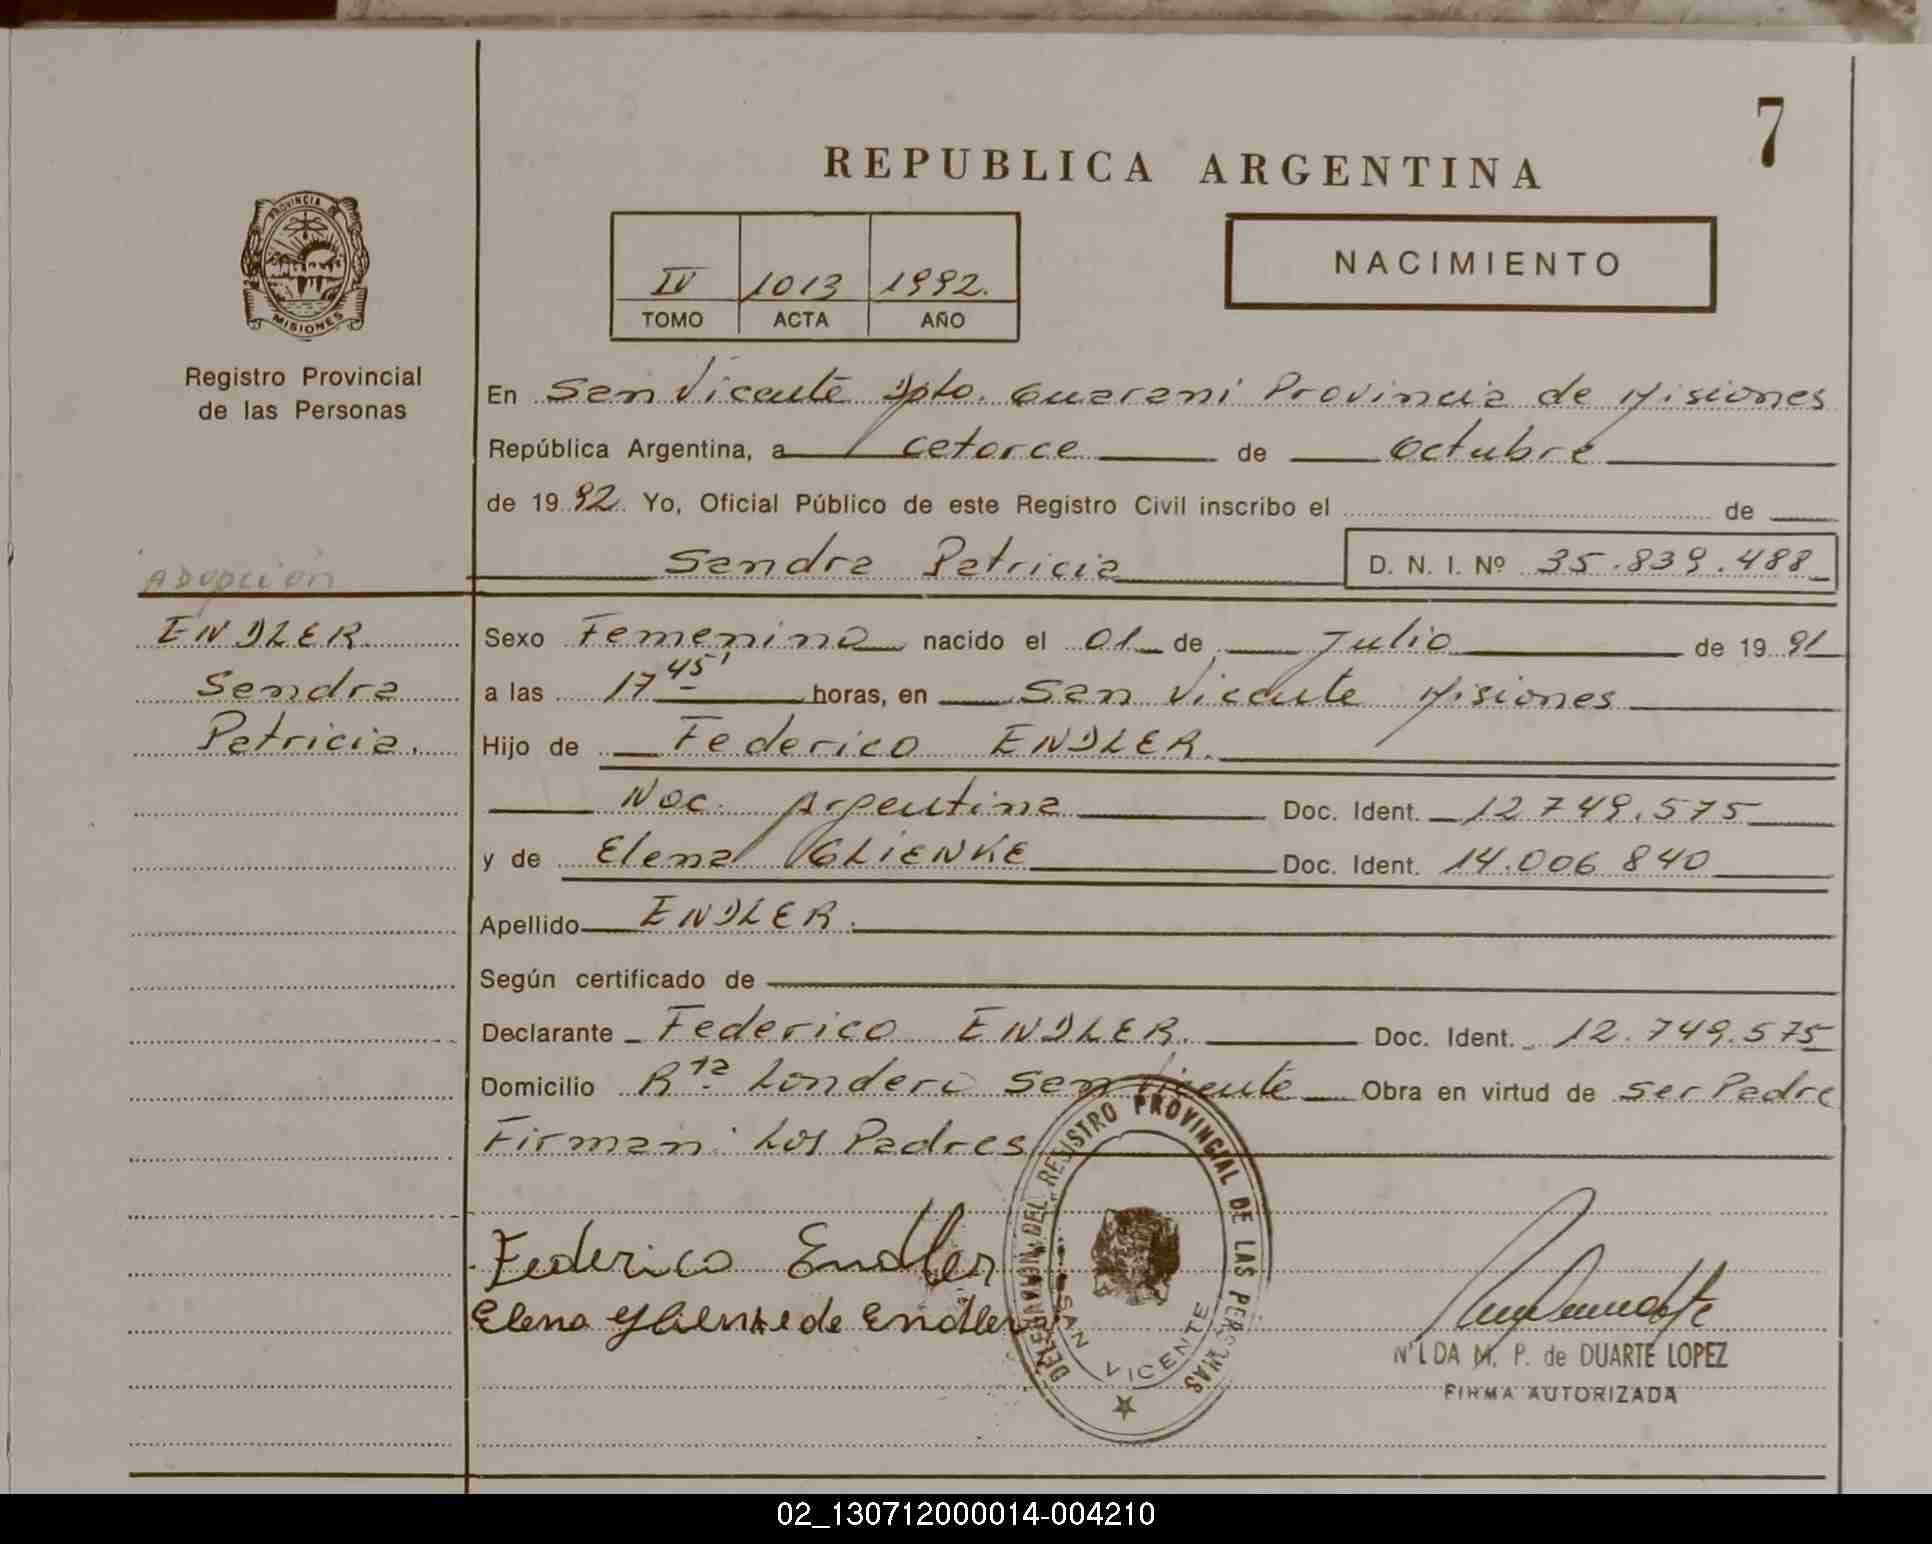 7
REPUBLICA ARGENTINA
PROVINCIA DE
MISIONES
IV 1013 1992.
TOMO ACTA AÑO
NACIMIENTO
Registro Provincial
de las Personas
En San Vicente Dpto. Guarani Provincia de Misiones
República Argentina, a catorce de octubre
de 19 92 Yo, Oficial Público de este Registro Civil inscribo el de
Sandra Patricia D. N. I. Nº 35.839.488
Adopcion
ENDLER
Sandra
Patricia.
Sexo Femenino nacido el 01 de Julio de 19 91
a las 17 45' horas, en San Vicente Misiones
Hijo de Federico ENDLER.
Nac. Argentina Doc. Ident. 12 749.575
y de Elena GLIENKE Doc. Ident. 14.006 840
Apellido ENDLER.
Según certificado de
Declarante Federico ENDLER. Doc. Ident. 12.749.575
Domicilio Rta Londero San Vicente Obra en virtud de ser Padre
Firman: Los Padres
Federico Endler
Elena Glienke de Endler
DELEGACION DEL REGISTRO PROVINCIAL DE LAS PERSONAS
SAN VICENTE
NILDA M. P. de DUARTE LOPEZ
FIRMA AUTORIZADA
02_130712000014-004210